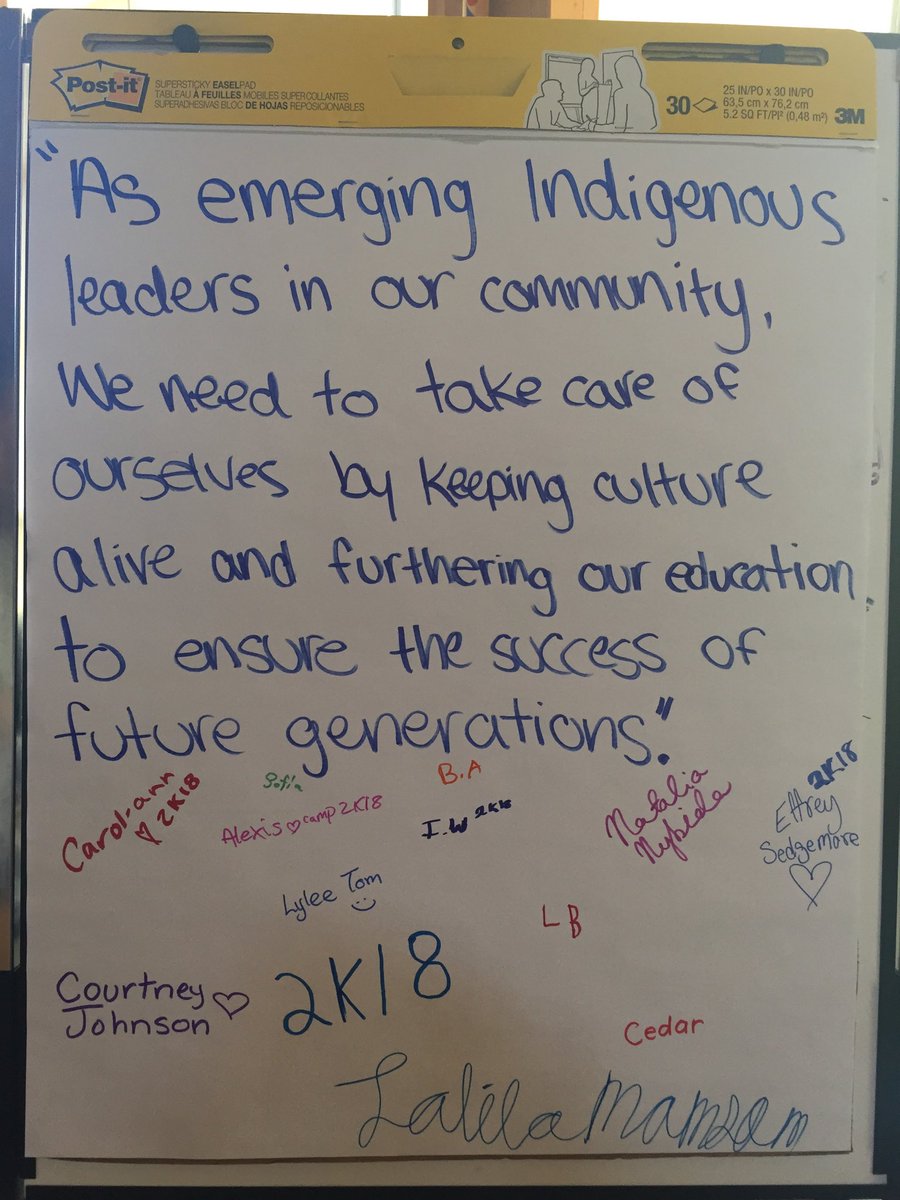 Post-it
SUPERSTICKY EASELPAD
TABLEAU À FEUILLES MOBILES SUPERCOLLANTES
SUPERADHESIVAS BLOC DE HOJAS REPOSICIONABLES
30
25 IN/PO x 30 IN/PO
63,5 cm x 76,2 cm
5.2 SQ FT/PI² (0,48 m²)
3M
"As emerging Indigenous
leaders in our community,
We need to take care of
ourselves by keeping culture
alive and furthering our education
to ensure the success of
future generations."
Carol-ann
♡ 2K18
Sofia
Alexis ♡ camp 2K18
B.A
I.W 2K18
Natalia
2K18
Effrey
Sedgemore
Lylee Tom
LB
Courtney
Johnson
2K18
Cedar
Lalila